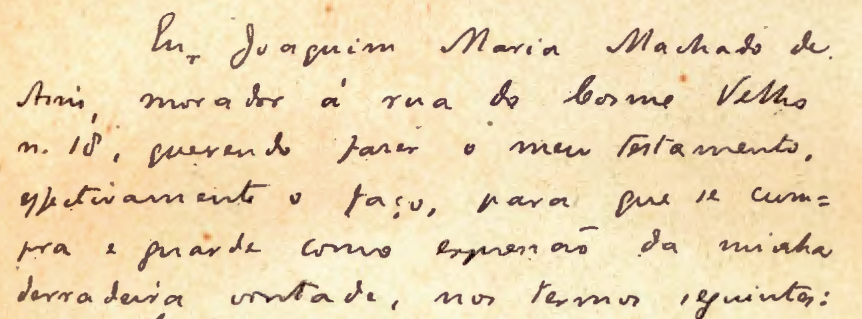 Eu, Joaquim Maria Machado de
Assis, morador á rua do Cosme Velho
n. 18, querendo fazer o meu testamento,
effectivamente o faço, para que se cum=
pra e guarde como expressão da minha
derradeira vontade, nos termos seguintes: